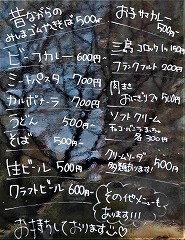 昔ながらの
みしまゴムやきそば 500円
ビーフカレー 600円~
ミートパスタ 700円
カルボナーラ 700円
うどん 500円~
そば 500円~
生ビール 500円
クラフトビール 600円~
お子サマカレー 500円
三島コロッケ 150円
フランクフルト 200円
肉巻
おにぎり 500円
ソフトクリーム
チョコ・バニラ・まっ茶
各 300円
クリームソーダ 500円
多数あります!
その他メニューも
あります!!!
お待ちしております